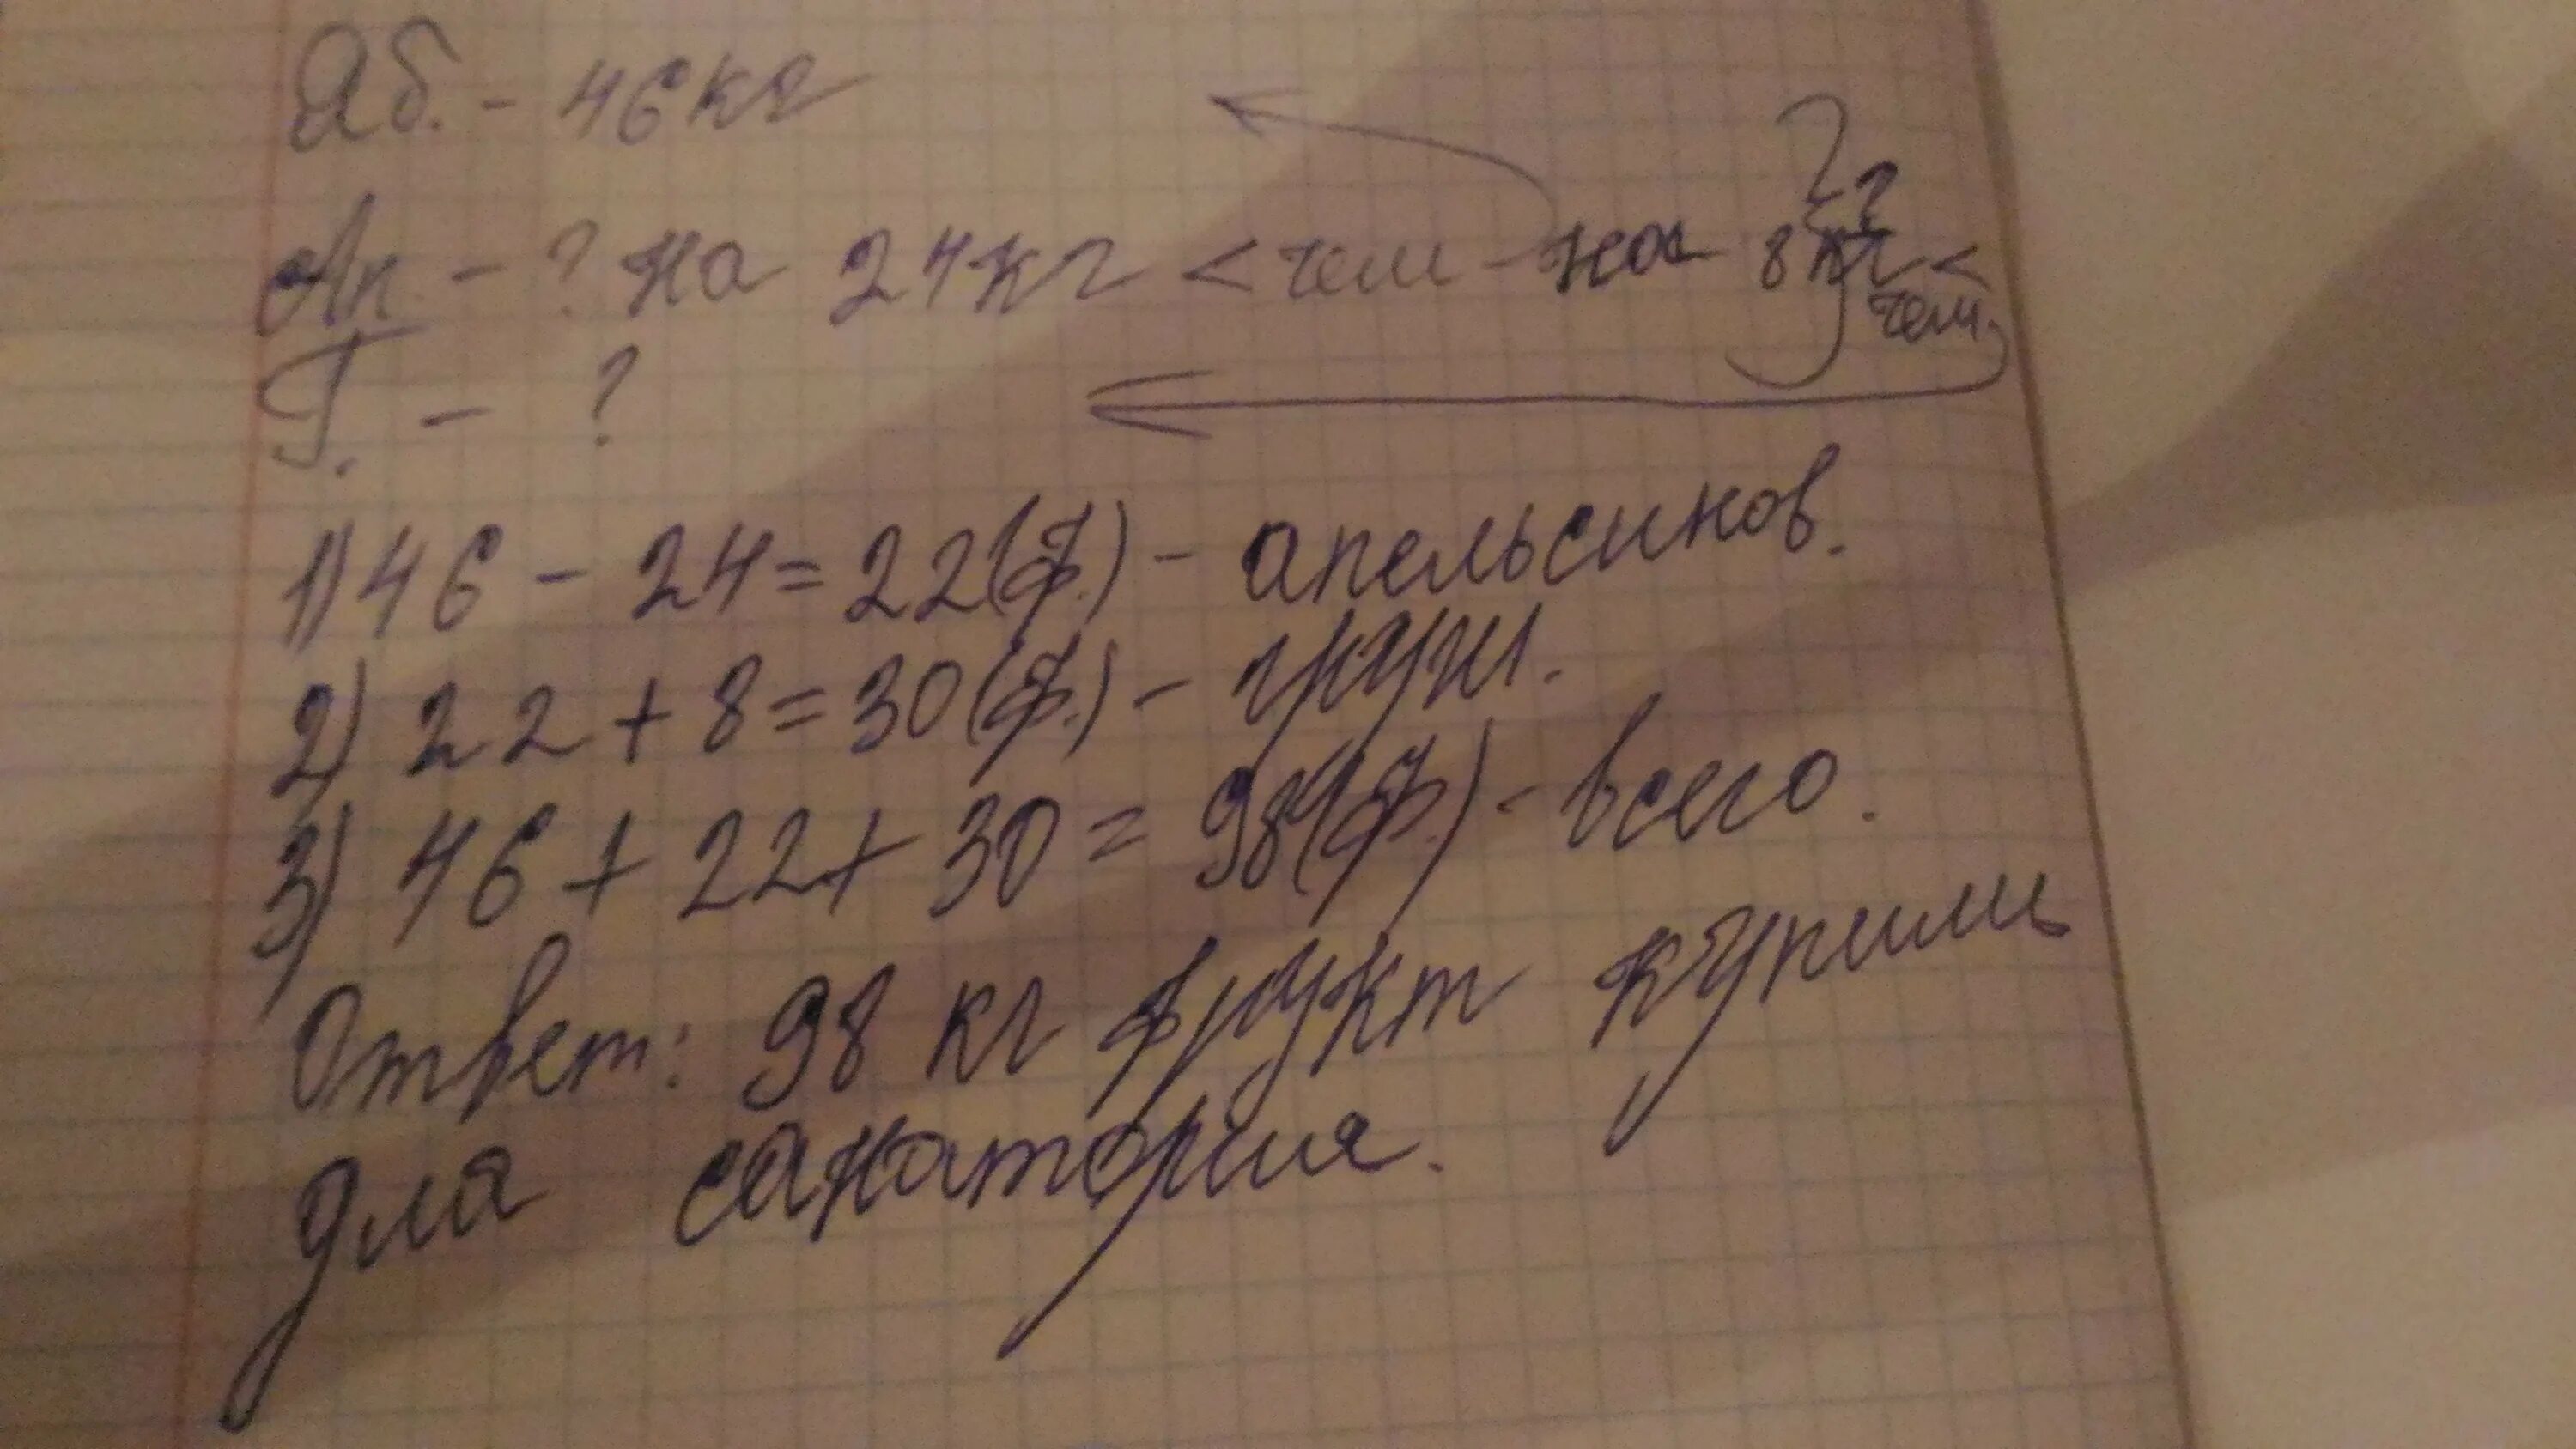 Яб. - 46кг
Ап. - ? на 24кг < чем - на 8 кг <
чем
Г. - ?
1) 46 - 24 = 22 (ф.) - апельсинов.
2) 22 + 8 = 30 (ф.) - груш.
3) 46 + 22 + 30 = 98 (ф.) - всего.
Ответ: 98 кг фрукт купили
для санатория.